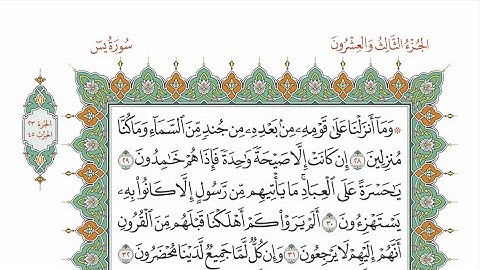 الجُزْءُ الثَّالِثُ وَالْعِشْرُونَ
سُورَةُ يسٓ
الجزء ٢٣
الحزب ٤٥
۞ وَمَآ أَنزَلْنَا عَلَىٰ قَوْمِهِۦ مِنۢ بَعْدِهِۦ مِن جُندٍ مِّنَ ٱلسَّمَآءِ وَمَا كُنَّا
مُنزِلِينَ ٢٨ إِن كَانَتْ إِلَّا صَيْحَةً وَٰحِدَةً فَإِذَا هُمْ خَٰمِدُونَ ٢٩
يَٰحَسْرَةً عَلَى ٱلْعِبَادِ ۚ مَا يَأْتِيهِم مِّن رَّسُولٍ إِلَّا كَانُوا۟ بِهِۦ
يَسْتَهْزِءُونَ ٣٠ أَلَمْ يَرَوْا۟ كَمْ أَهْلَكْنَا قَبْلَهُم مِّنَ ٱلْقُرُونِ
أَنَّهُمْ إِلَيْهِمْ لَا يَرْجِعُونَ ٣١ وَإِن كُلٌّ لَّمَّا جَمِيعٌ لَّدَيْنَا مُحْضَرُونَ ٣٢